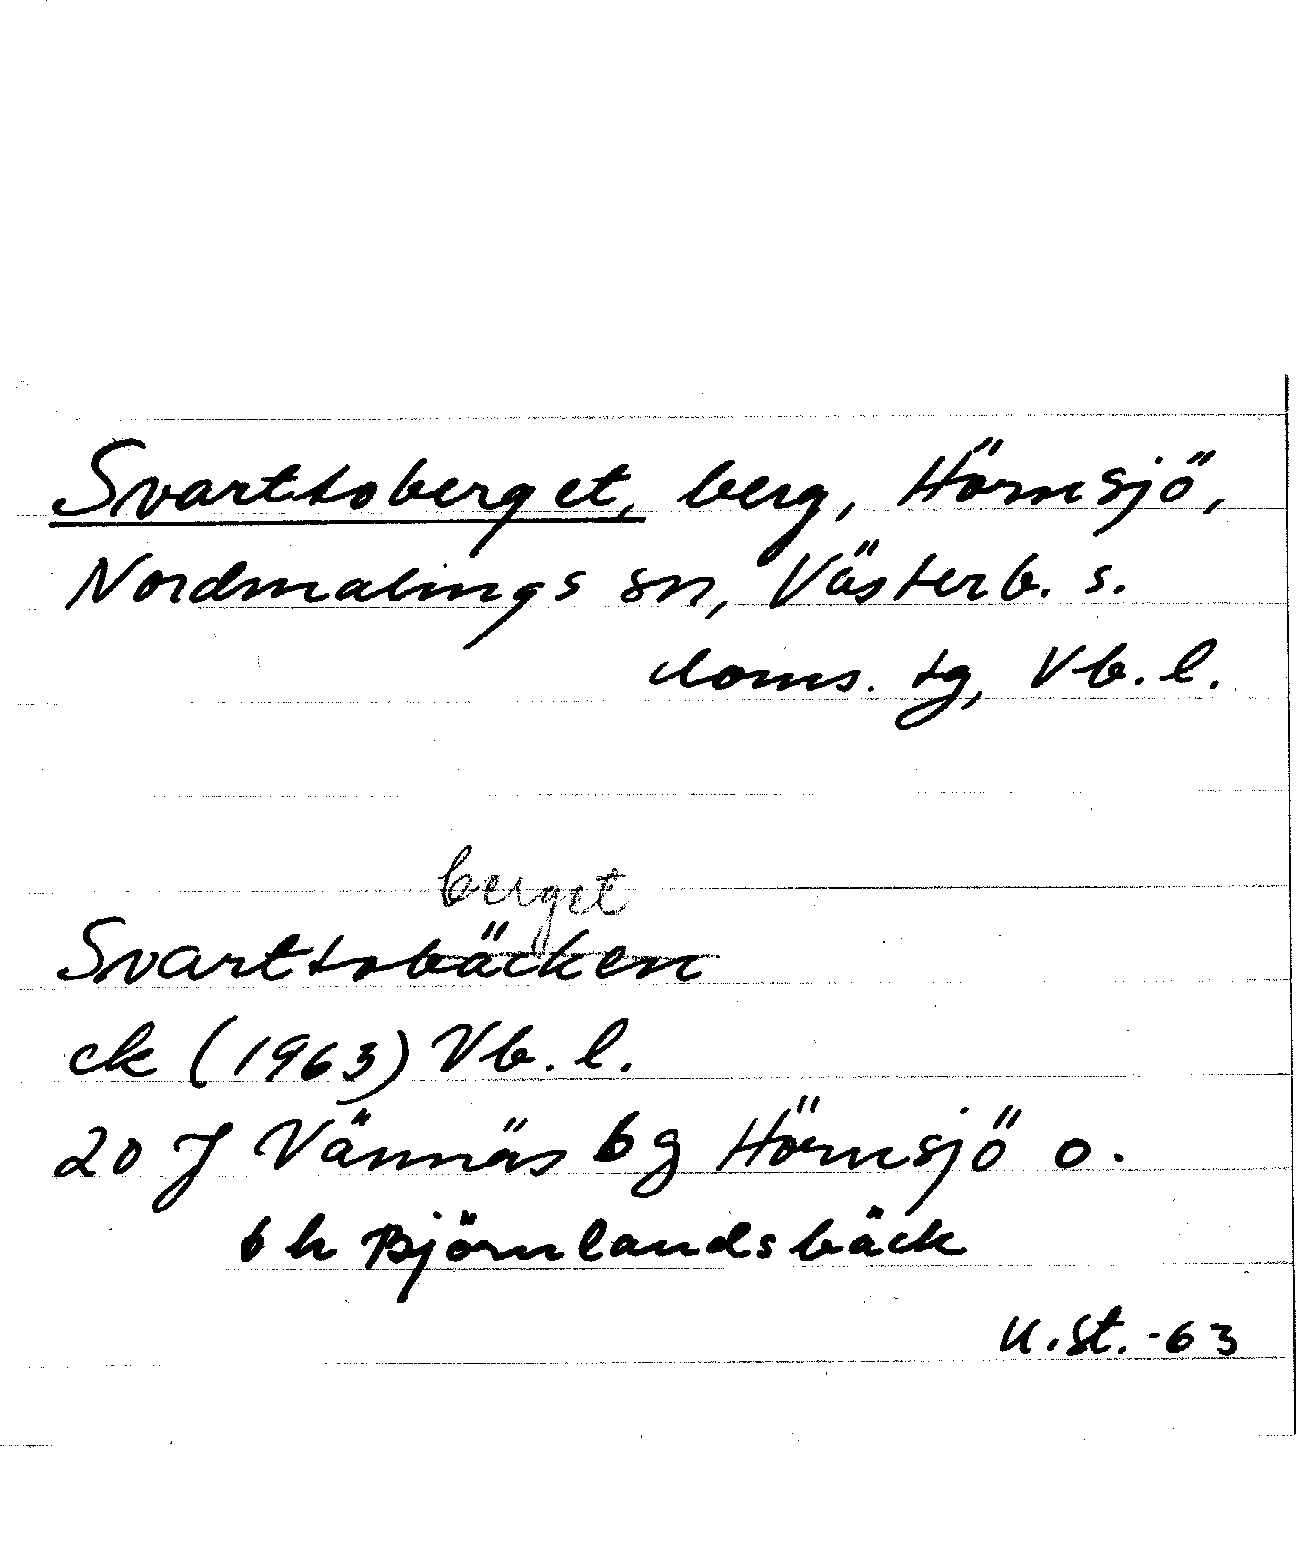 Svarttoberget, berg, Hörnsjö,
Nordmalings sn, Västerb. s.
doms. tg, Vb. l.
berget
Svarttobäcken
ek (1963) Vb. l.
20 J Vännäs bg Hörnsjö o.
b h Björnlandsbäck
U. St. -63